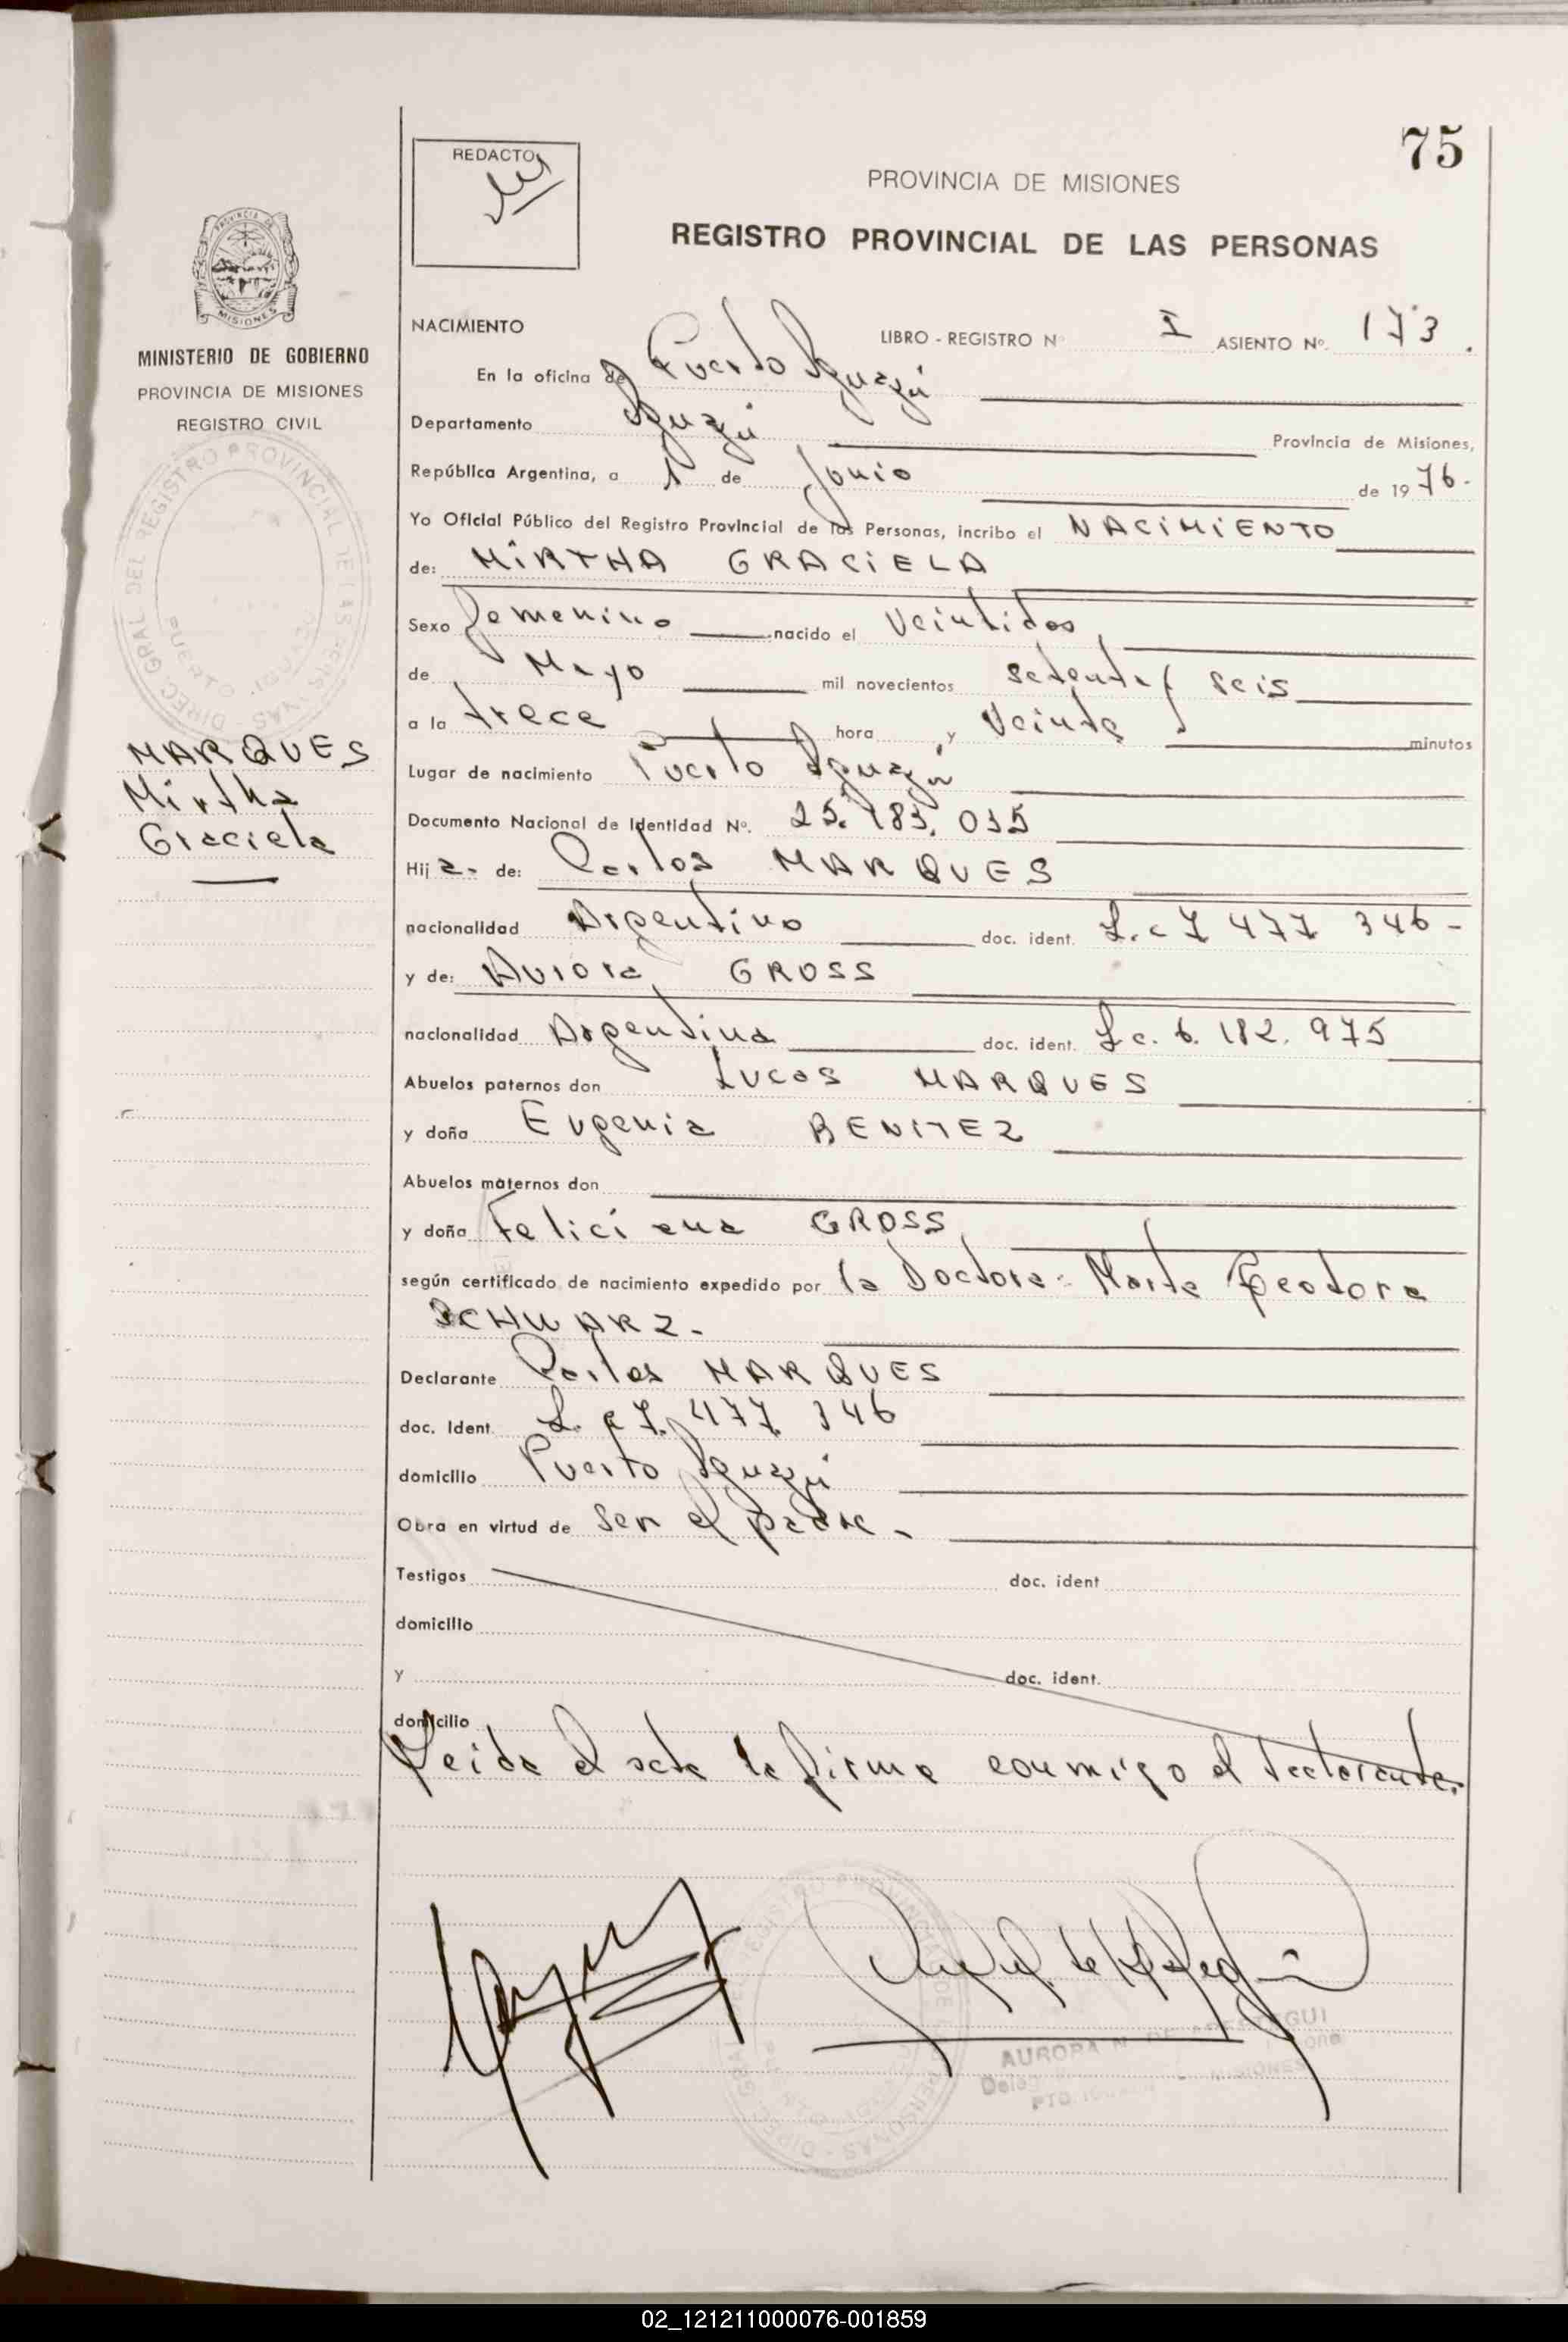 75
REDACTO
PROVINCIA DE MISIONES
REGISTRO PROVINCIAL DE LAS PERSONAS
MISIONES
MINISTERIO DE GOBIERNO
PROVINCIA DE MISIONES
REGISTRO CIVIL
MARQUES
Mirtha
Graciela
NACIMIENTO LIBRO - REGISTRO Nº I ASIENTO Nº. 173.
En la oficina de Puerto Iguazú
Departamento Iguazú Provincia de Misiones,
República Argentina, a 1 de Junio de 1976.
Yo Oficial Público del Registro Provincial de las Personas, incribo el NACIMIENTO
de: MIRTHA GRACIELA
Sexo Femenino nacido el Veintidos
de Mayo mil novecientos setenta y seis
a la trece hora y Veinte minutos
Lugar de nacimiento Puerto Iguazú
Documento Nacional de Identidad Nº. 25.183.035
Hija de: Carlos MARQUES
nacionalidad Argentino doc. ident. L.e 7 477 346-
y de: Aurora GROSS
nacionalidad Argentina doc. ident. L c. 6. 182. 975
Abuelos paternos don Lucas MARQUES
y doña Eugenia BENITEZ
Abuelos maternos don
y doña Feliciana GROSS
según certificado de nacimiento expedido por la Doctora: Marta Teodora
SCHWARZ.
Declarante Carlos MARQUES
doc. Ident. L. e 7. 477. 346
domicilio Puerto Iguazú
Obra en virtud de Ser el padre.
Testigos doc. ident
domicilio
y doc. ident.
domicilio
Leida el acta la firma conmigo el declarante.
AURORA N. DE ARESTEGUI
02_121211000076-001859